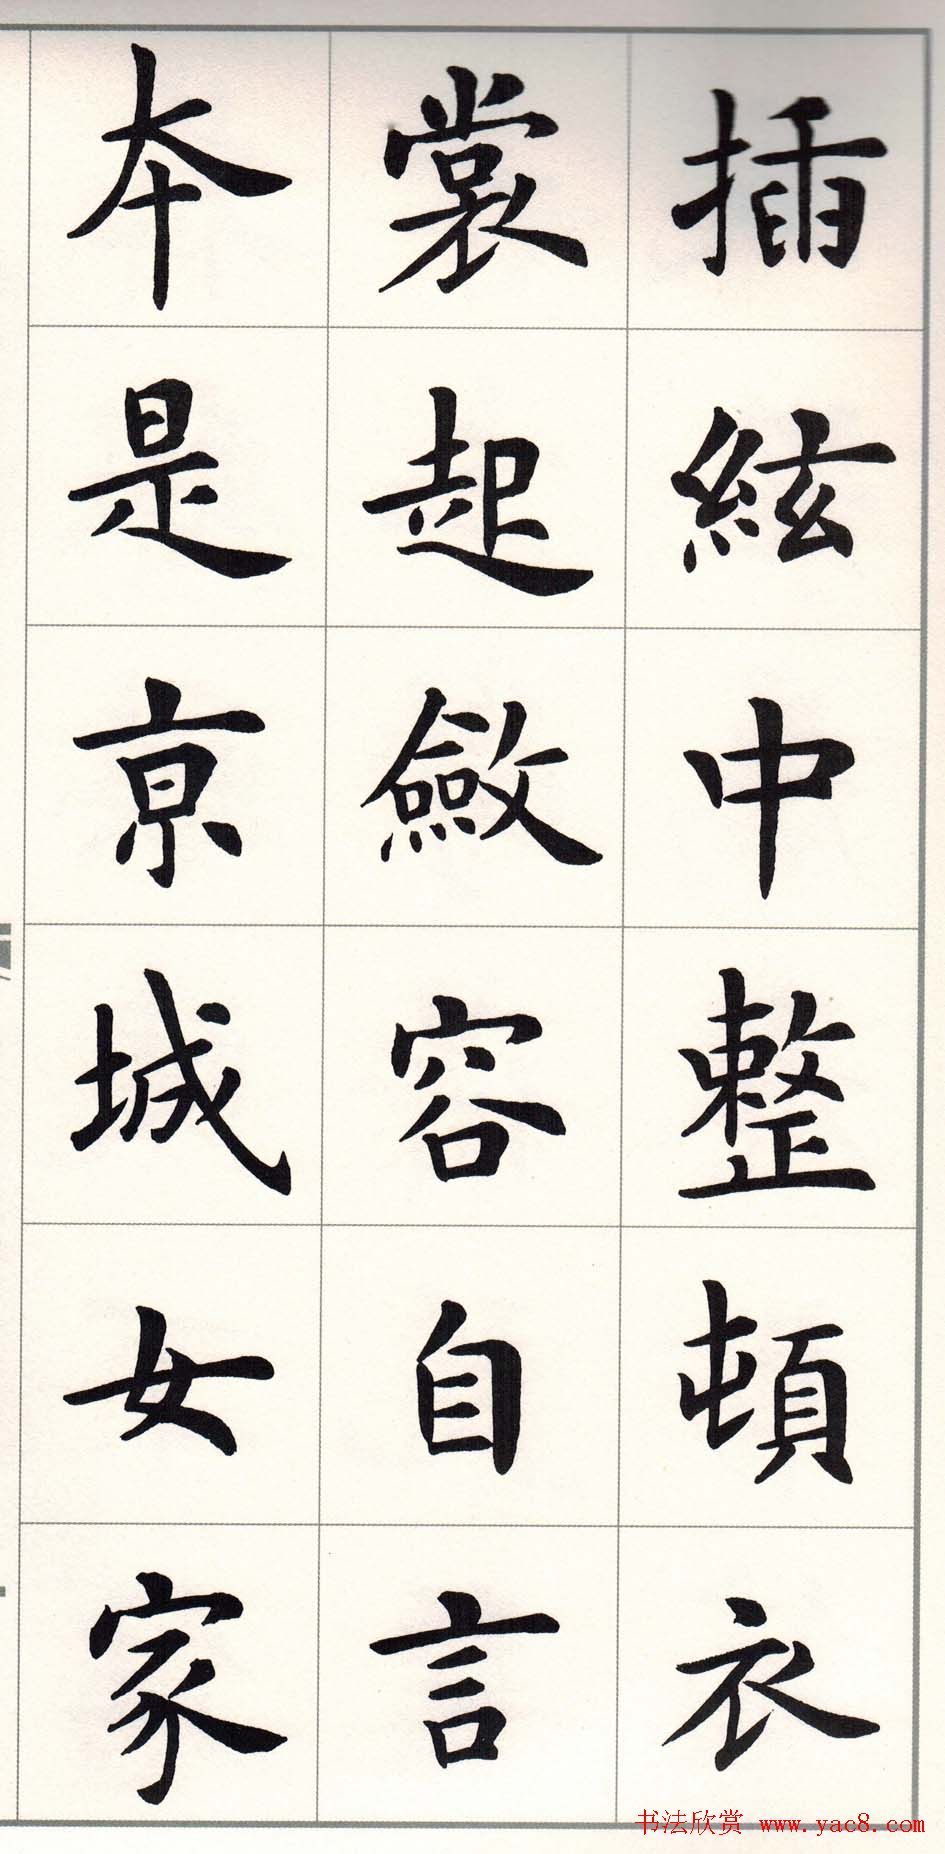 插絃中整頓衣
裳起斂容自言
本是京城女家
书法欣赏 www.yac8.com